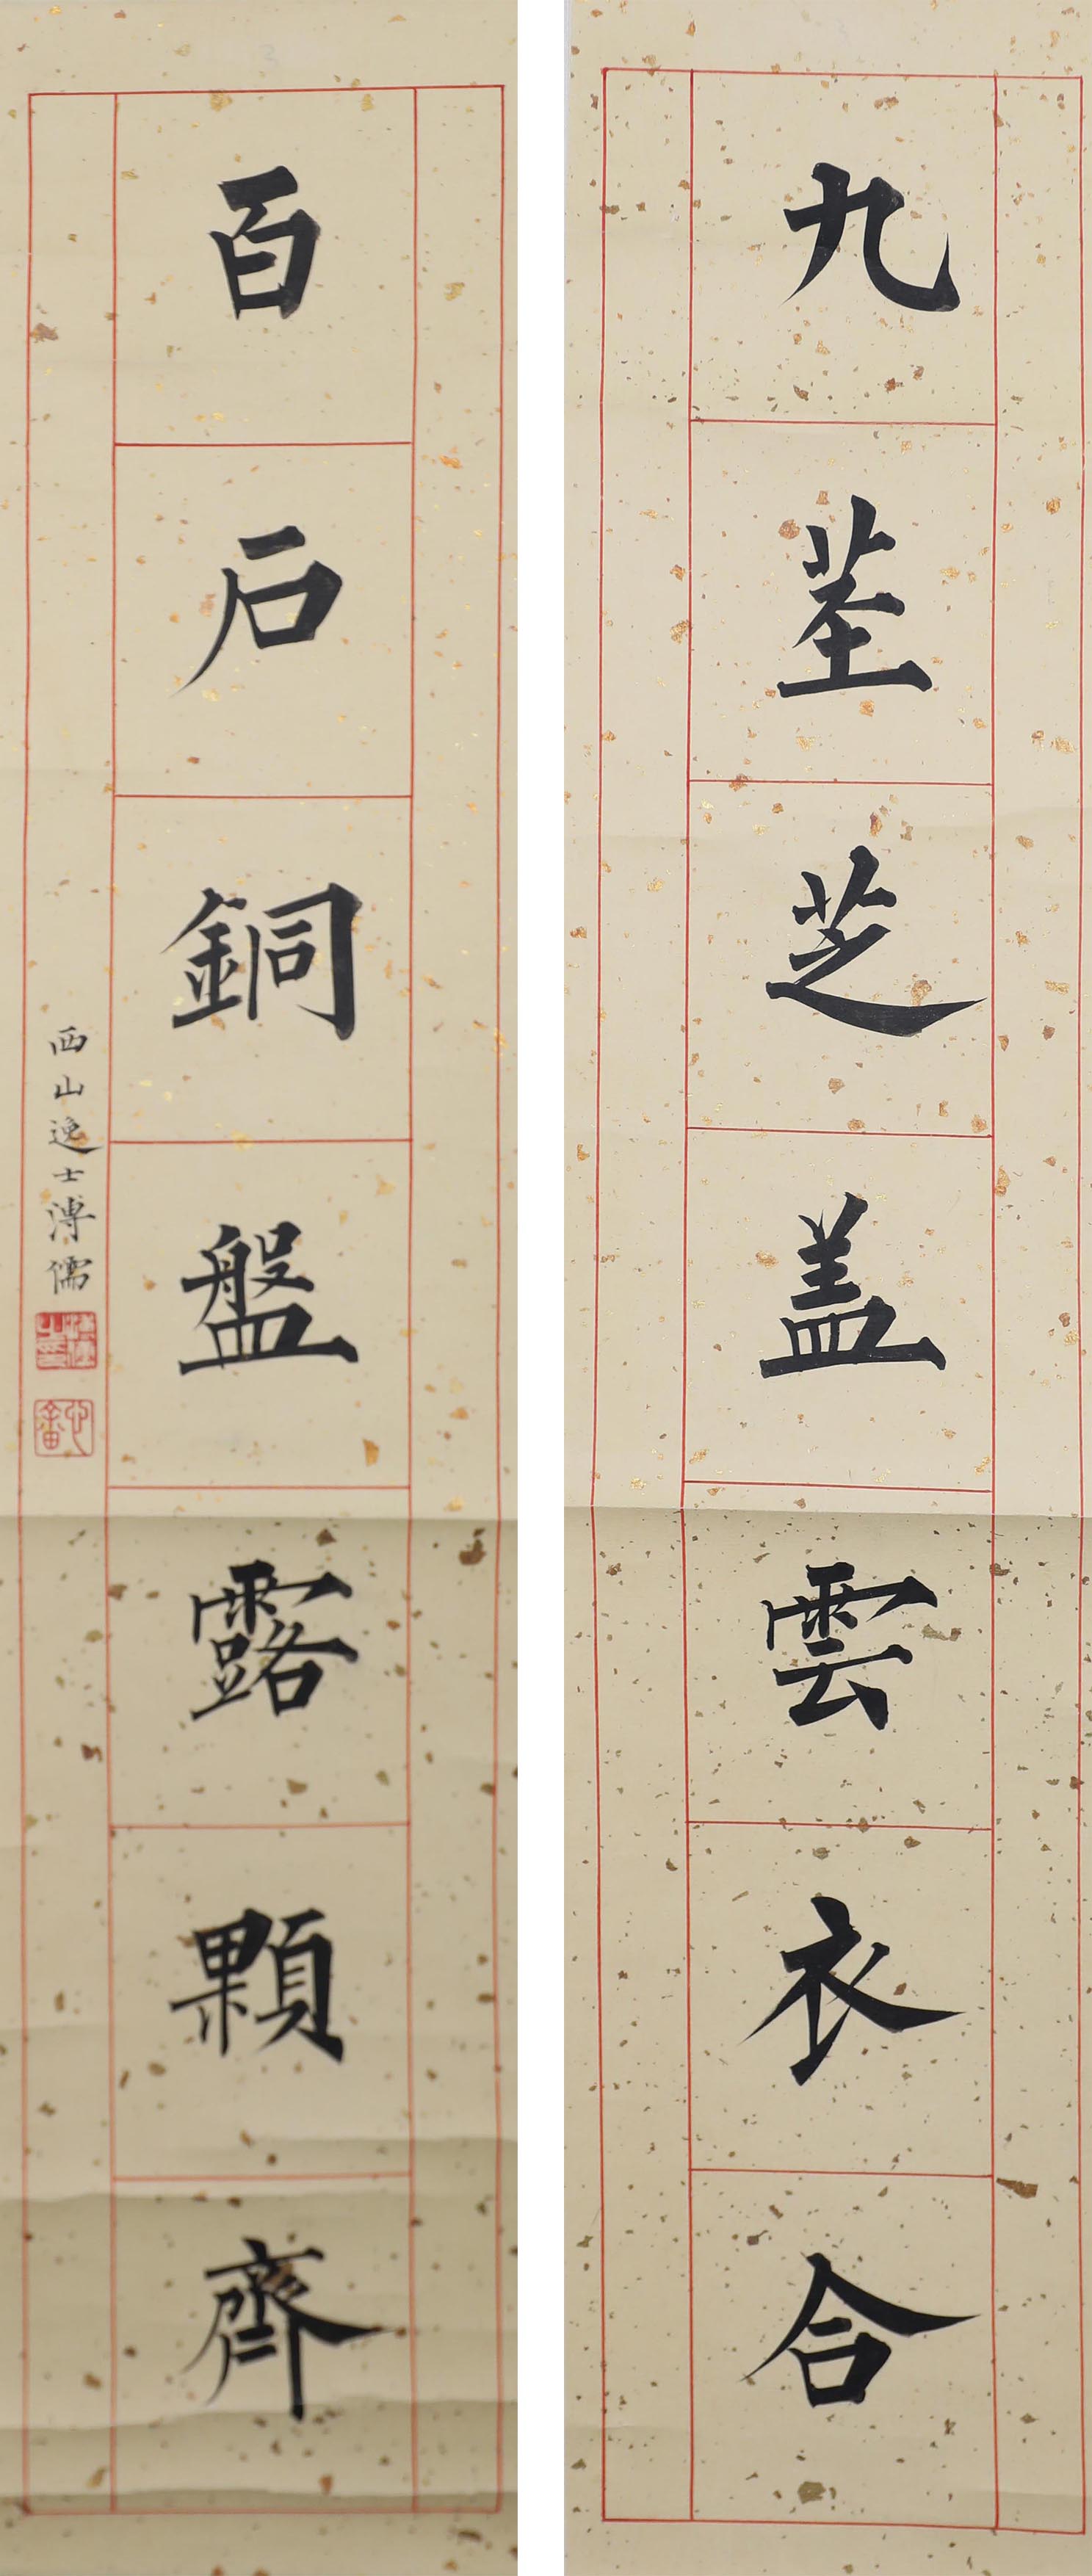 九茎芝盖雲衣合
百户銅盤露顆齊
西山逸士溥儒